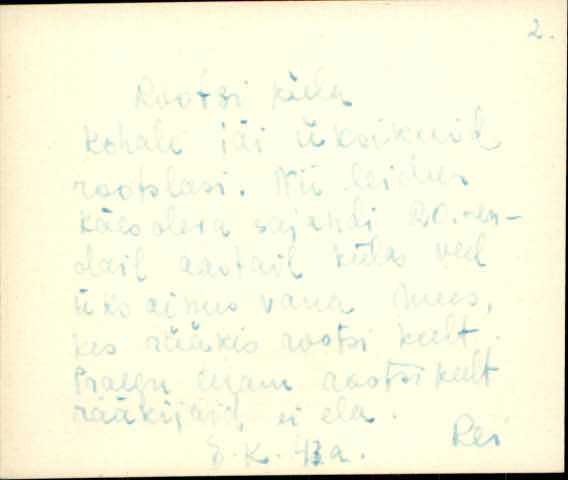 2.
Rootsi küla
Kohale jäi üksikuid
rootslasi. Nii leidus
käesoleva sajandi 20.-en-
dail aastail külas veel
üks ainus vana mees,
kes rääkis rootsi keelt.
Praegu enam rootsi keelt
rääkijaid ei ela.
Rei